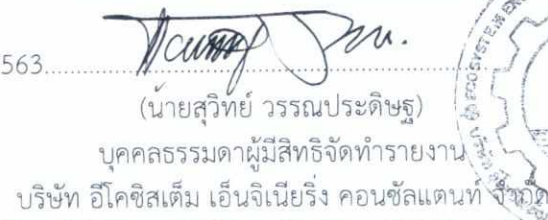 563
(นายสุวิทย์ วรรณประดิษฐ)
บุคคลธรรมดาผู้มีสิทธิจัดทำรายงาน
บริษัท อีโคซิสเต็ม เอ็นจิเนียริ่ง คอนซัลแตนท จำกัด